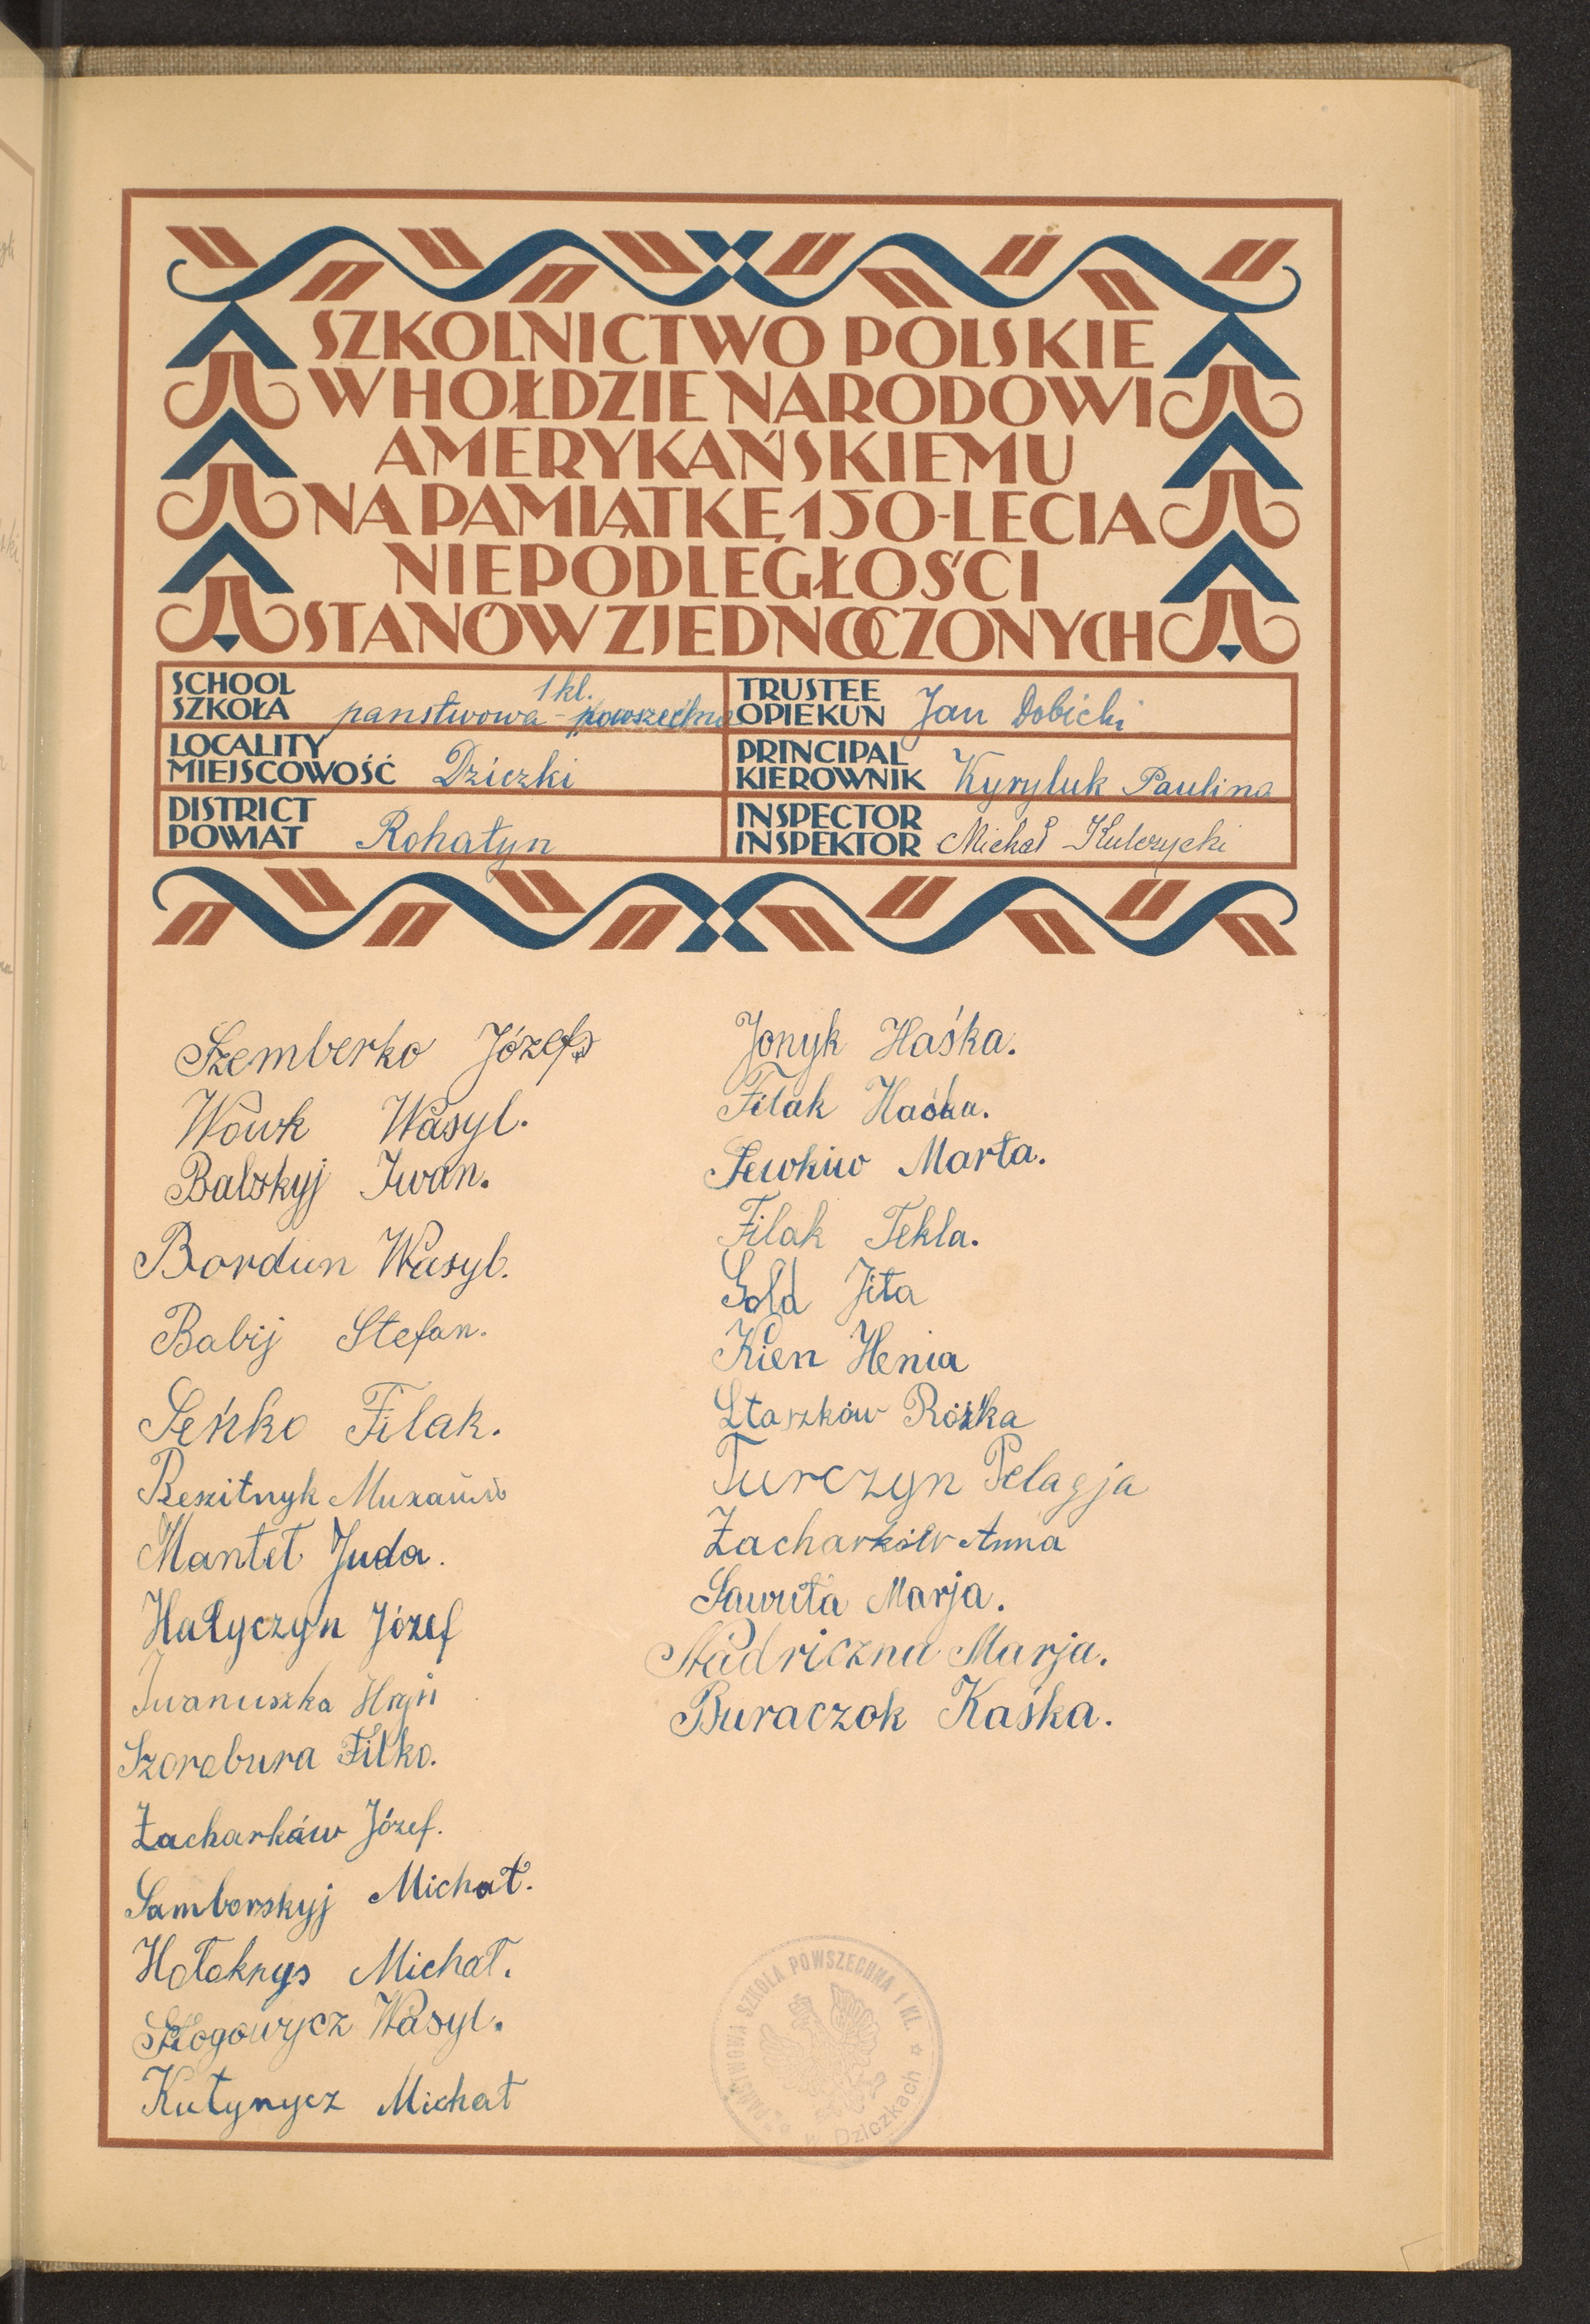 SZKOLNICTWO POLSKIE
W HOŁDZIE NARODOWI
AMERYKAŃSKIEMU
NA PAMIĄTKĘ 150-LECIA
NIEPODLEGŁOŚCI
STANÓW ZJEDNOCZONYCH
SCHOOL
SZKOŁA
1 kl.
państwowa - powszechna
TRUSTEE
OPIEKUN
Jan Dobicki
LOCALITY
MIEJSCOWOŚĆ
Dziczki
PRINCIPAL
KIEROWNIK
Kyryluk Paulina
DISTRICT
POWIAT
Rohatyn
INSPECTOR
INSPEKTOR
Michał Kulczycki
Szemberko Józefa
Wówk Wasyl.
Balskyj Iwan.
Bordun Wasyl.
Babij Stefan.
Seńko Filak.
Reszitnyk
Mantel Juda.
Hałyczyn Józef
Iwanuszka
Szorobura Filko.
Zacharków Józef.
Samborskyj Michał.
Hołokrys Michał.
Wasyl.
Kutynycz Michał
Jonyk Haśka.
Filak Haśka.
Sewkiw Marta.
Filak Tekla.
Gold Jita
Kien Henia
Staszków Rózka
Turczyn Pelagja
Zacharków Anna
Sawuła Marja.
Nadriczna Marja.
Buraczok Kaśka.
PAŃSTWOWA SZKOŁA POWSZECHNA 1 KL.
w Dziczkach